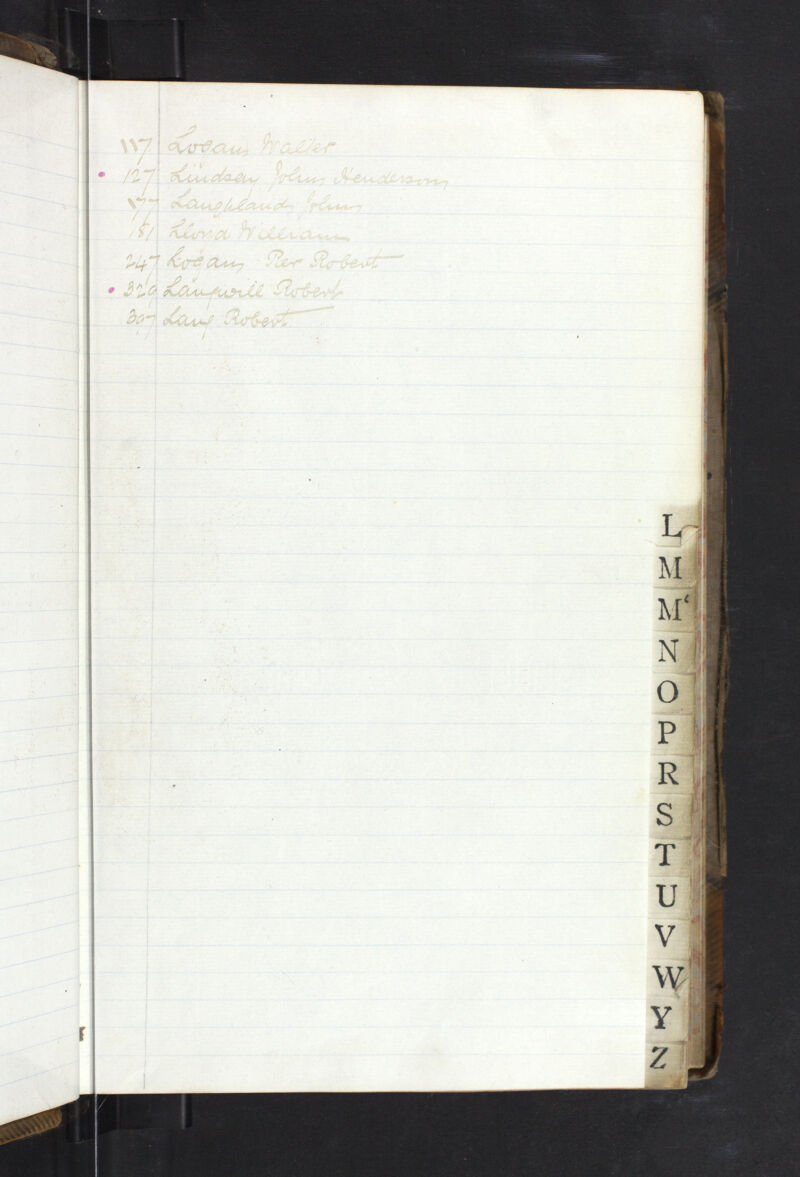 117 Logan Walter
127 Lindsay John Henderson
177 Laughland John
181 Lloyd William
247 Logan Rev Robert
329 Langwill Robert
397 Lang Robert
L
M
Mc
N
O
P
R
S
T
U
V
W
Y
Z